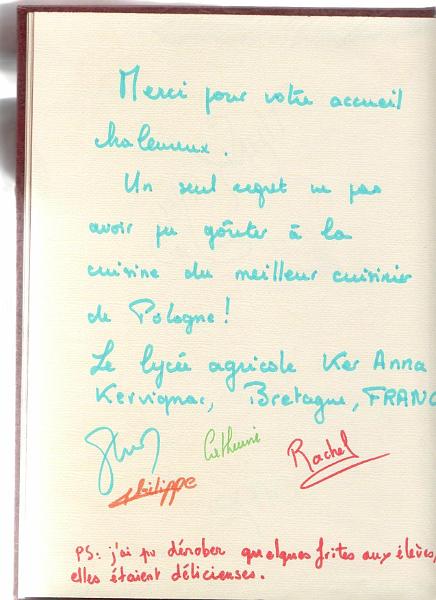 Merci pour votre accueil
chaleureux.
Un seul regret ne pas
avoir pu goûter à la
cuisine du meilleur cuisinier
de Pologne!
Le lycée agricole Ker Anna
Kervignac, Bretagne, FRANC
Catherine
Rachel
Philippe
PS: j'ai pu dérober quelques frites aux élèves,
elles étaient délicieuses.